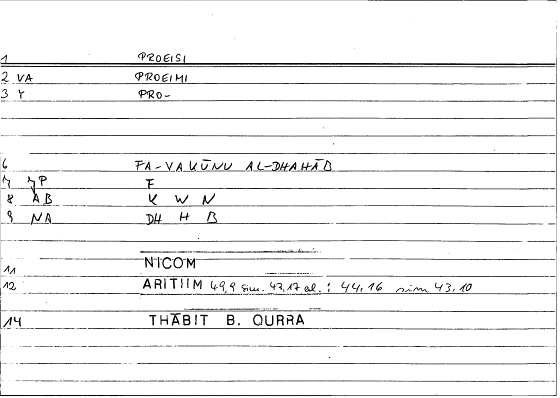 1 PROEISI
2 VA PROEIMI
3 Y PRO-
6 FA-YAKŪNU AL-DHAHĀB
7 YP F
8 AB K W N
9 NA DH H B
11 NICOM
12 ARITHM 49,9 sim. 47,17 al. : 44.16 sim 43.10
14 THĀBIT B. QURRA